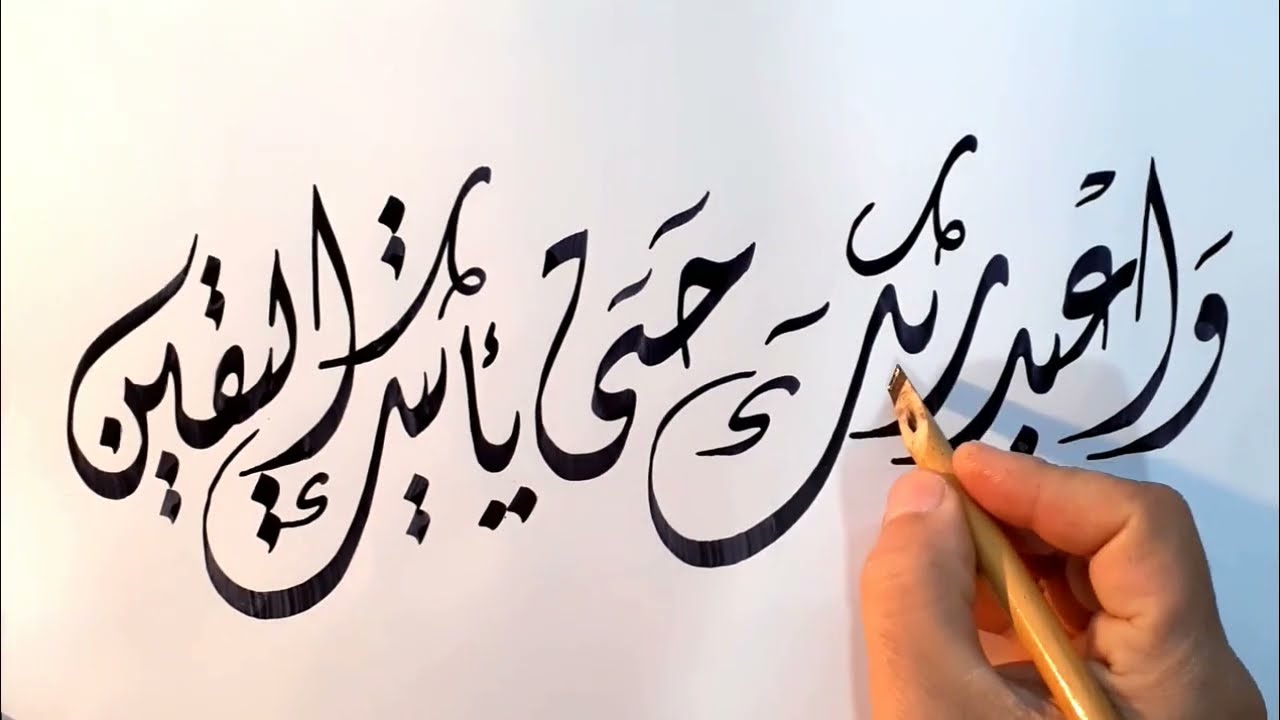 وَاعْبد ربّكَ حَتَى يأتيك اليقين